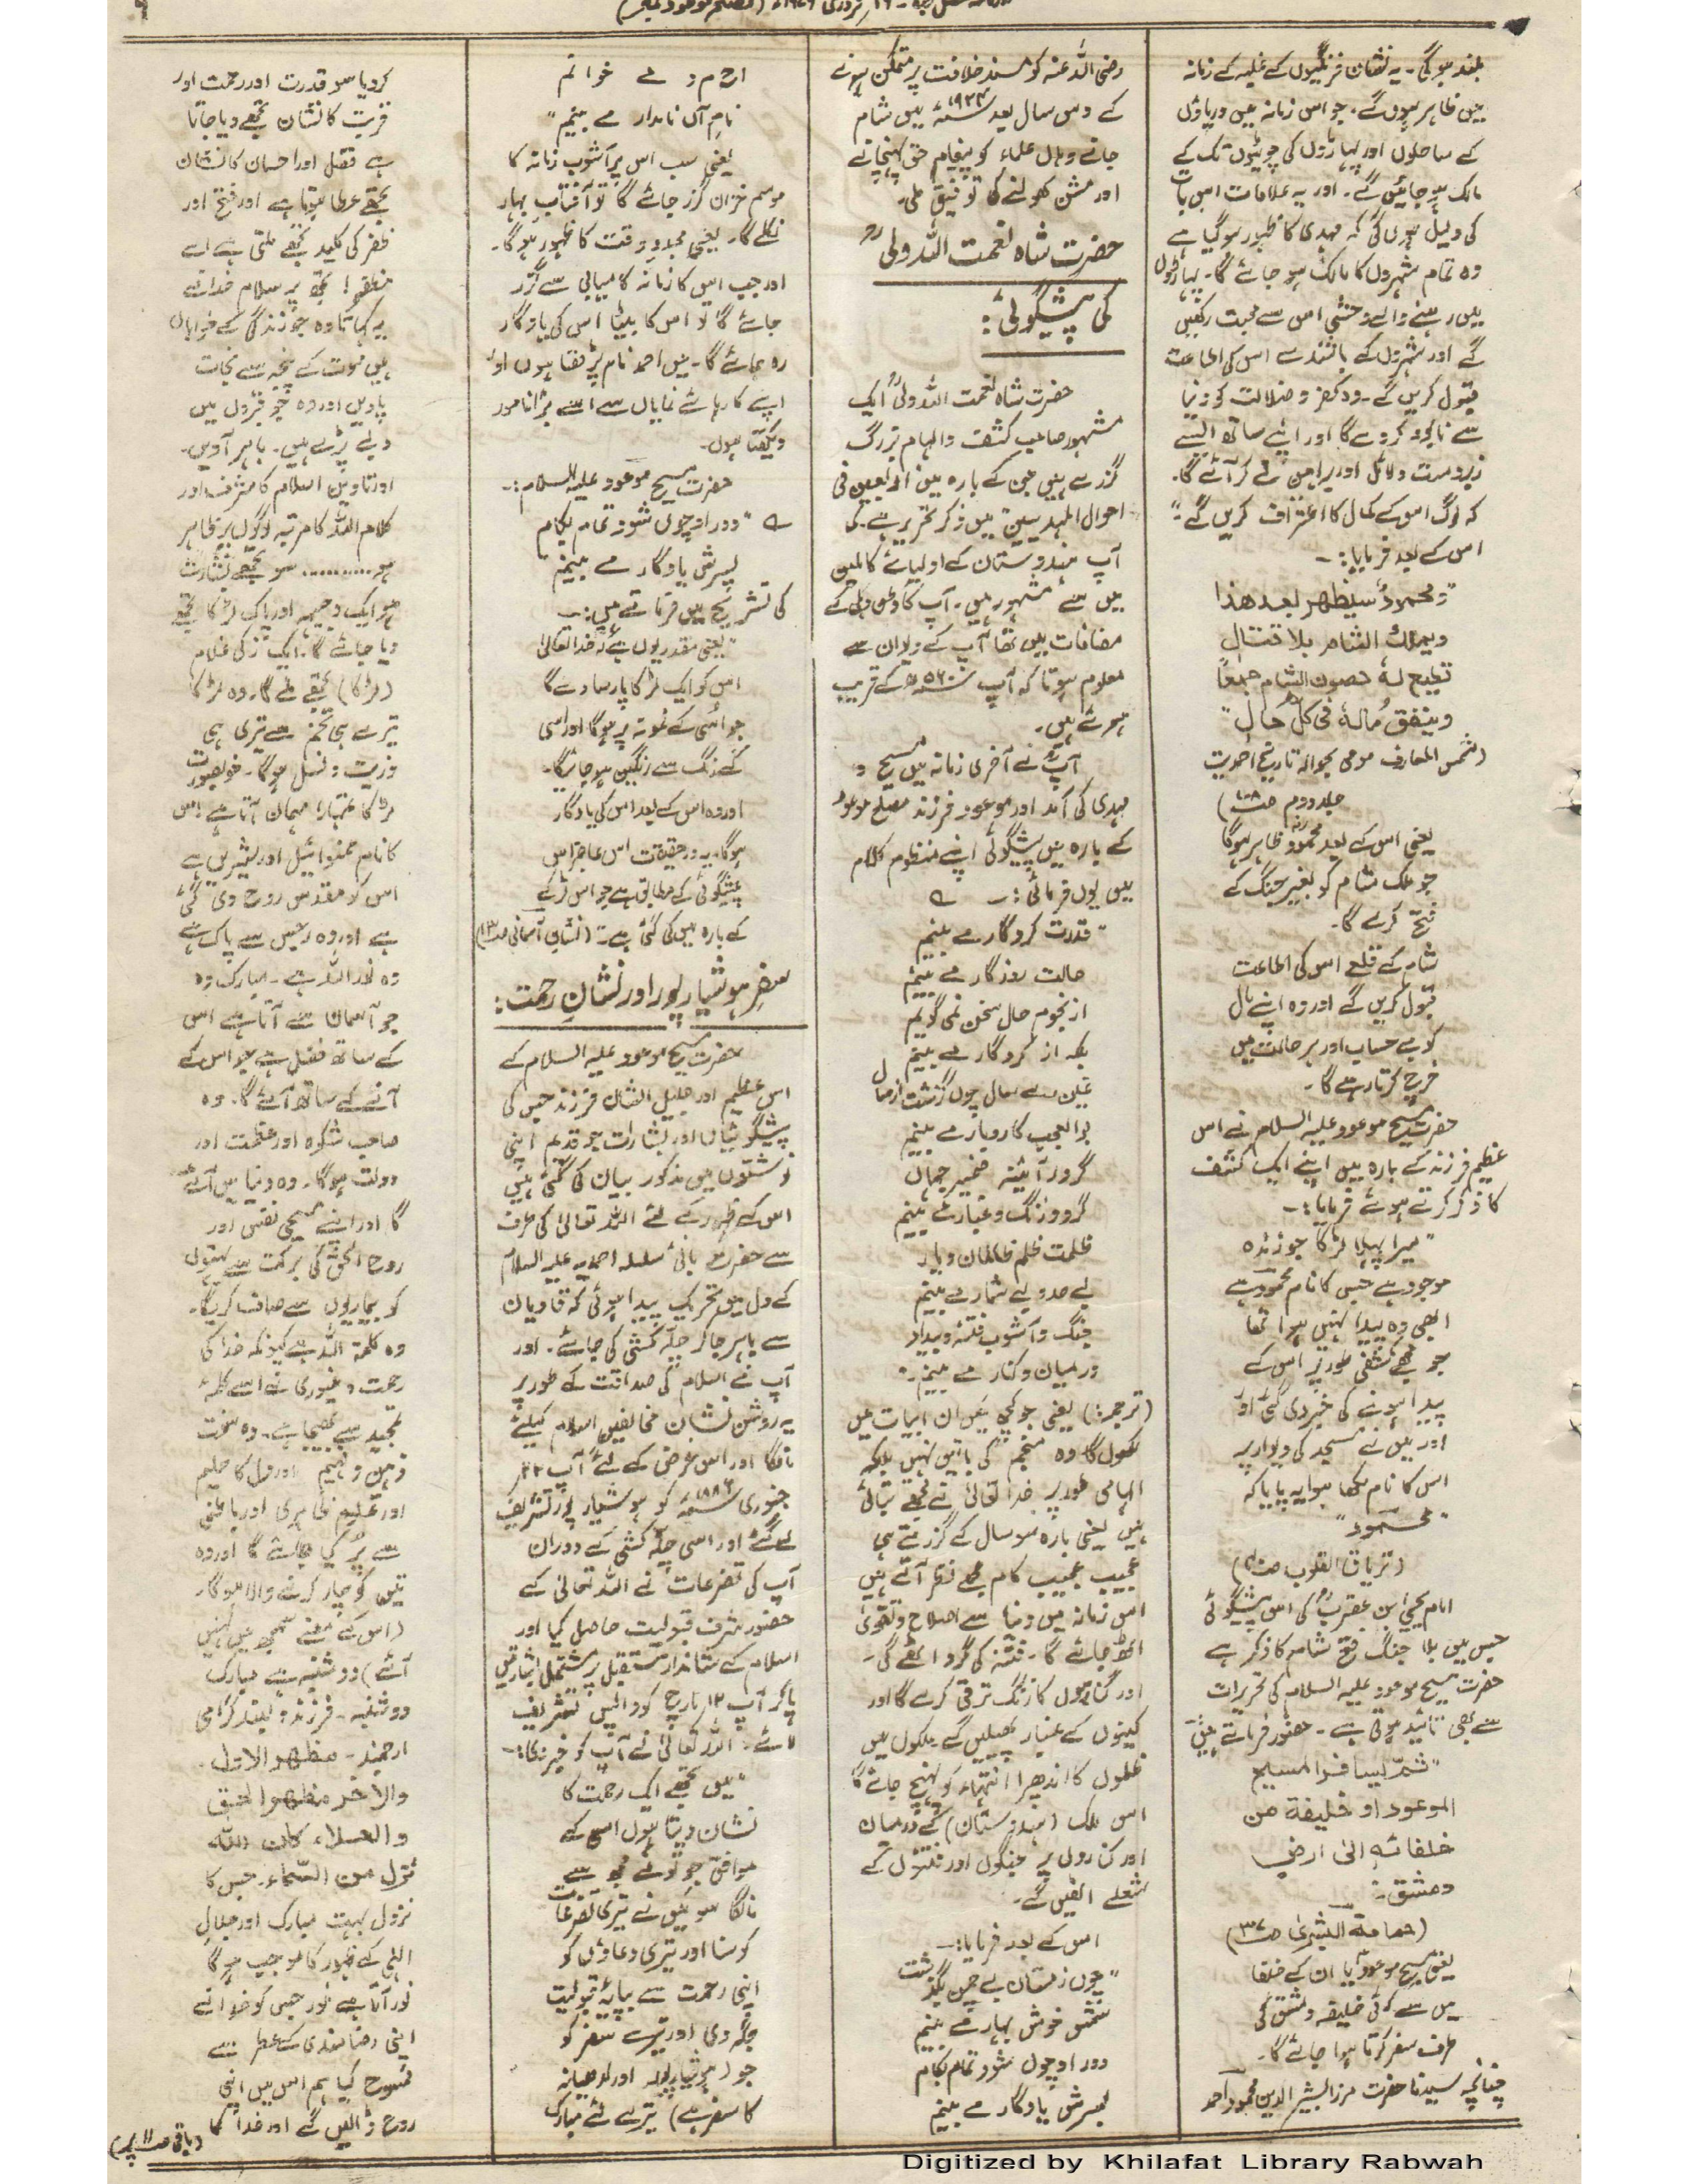 بلند ہو گی۔ یہ نشان فرنگیوں کے غلبہ کے زمانہ
میں ظاہر ہوں گے۔ جو اس زمانہ میں دریاؤں
کے ساحلوں اور پہاڑوں کی چوٹیوں تک کے
مالک ہو جائیں گے۔ اور یہ علامات اس بات
کی دلیل ہوں گی کہ مہدی کا ظہور ہو گیا ہے
وہ تمام شہروں کا مالک ہو جائے گا۔ پہاڑوں
میں رہنے والے وحشی اس سے محبت رکھیں
گے اور شہروں کے باشندے اس کی اطاعت
قبول کریں گے۔ وہ کفر و ضلالت کو دنیا
سے نابود کر دے گا اور اپنے ساتھ ایسے
زبردست دلائل اور براہین لے کر آئے گا۔
کہ لوگ اس کے کمال کا اعتراف کریں گے"
اس کے بعد فرمایا:۔
"ومحمودٌ سیظھر بعد ھذا
ویملک الشام بلا قتال
تطیع لہ حصون الشام جمعاً
وینفق مالہ فی کل حال"
(شمس المعارف مومی بحوالہ تاریخ احمدیت
جلد دوم صـ)
یعنی اس کے بعد محمود ظاہر ہوگا
جو ملک شام کو بغیر جنگ کے
فتح کرے گا۔
شام کے قلعے اس کی اطاعت
قبول کریں گے اور وہ اپنے مال
کو بے حساب اور ہر حالت میں
خرچ کرتا رہے گا۔
حضرت مسیح موعود علیہ السلام نے اس
عظیم فرزند کے بارہ میں اپنے ایک کشف
کا ذکر کرتے ہوئے فرمایا:۔
"میرا پہلا لڑکا جو زندہ
موجود ہے جس کا نام محمود ہے
ابھی وہ پیدا نہیں ہوا تھا
جو مجھے کشفی طور پر اس کے
پیدا ہونے کی خبر دی گئی اور
اور میں نے مسجد کی دیوار پر
اس کا نام لکھا ہوا یہ پایا کہ
"محمود"
(تریاق القلوب صـ)
امام یحییٰ ابن عقربؒ کی اس پیشگوئی
جس میں بلا جنگ فتح شام کا ذکر ہے
حضرت مسیح موعود علیہ السلام کی تحریرات
سے بھی تائید ہوتی ہے۔ حضور فرماتے ہیں
"ثمّ یسافر المسیح
الموعود او خلیفۃ من
خلفائہٖ الیٰ ارض
دمشق۔"
(حمامۃ البشریٰ صـ۳۷)
یعنی مسیح موعود یا ان کے خلفا
میں سے کوئی خلیفہ دمشق کی
طرف سفر کرتا ہوا جائے گا۔
چنانچہ سیدنا حضرت مرزا بشیر الدین محمود احمد
رضی اللہ عنہ کو مسند خلافت پر متمکن ہونے
کے دس سال بعد ۱۹۲۴ء میں شام
جانے وہاں علماء کو پیغام حق پہنچانے
اور مشن کھولنے کی توفیق ملی۔
حضرت شاہ نعمت اللہ ولیؒ
کی پیشگوئی:
حضرت شاہ نعمت اللہ ولیؒ ایک
مشہور صاحب کشف و الہام بزرگ
گزرے ہیں جن کے بارہ میں اربعین فی
احوال المہدیین میں ذکر تحریر ہے۔ کہ
آپ ہندوستان کے اولیائے کاملین
میں سے مشہور ہیں۔ آپ کا وطن دہلی کے
مضافات میں تھا آپ کے دیوان سے
معلوم ہوتا کہ آپ ۵۶۰ھ کے قریب
ہوئے ہیں۔
آپؒ نے آخری زمانہ میں مسیح و
مہدی کی آمد اور موعود فرزند مصلح موعود
کے بارہ میں پیشگوئی اپنے منظوم کلام
میں یوں فرمائی:۔ ؎
"قدرت کردگار مے بینم
حالت روزگار مے بینم
از نجوم حال سخن نمی گویم
بلکہ از کردگار مے بینم
غین سے سال چوں گزشت از سال
بوالعجب کاروبار مے بینم
گر در آئینہ ضمیر جہاں
گرد و زنگ و غبار مے بینم
ظلمت ظلم ظالمان دیار
بے حد و بے شمار مے بینم
جنگ و آشوب فتنہ و بیداد
درمیان و کنار مے بینم۔"
(ترجمہ:) یعنی جو کچھ میں ان ابیات میں
لکھوں گا وہ منجم کی باتیں نہیں بلکہ
الہامی طور پر خدا تعالیٰ نے مجھے بتائی
ہیں یعنی بارہ سو سال کے گزرتے ہی
عجیب عجیب کام مجھے نظر آتے ہیں
اس زمانہ میں دنیا سے اصلاح و تقویٰ
اٹھ جائے گا۔ فتنہ کی گرد اٹھے گی۔
اور گناہوں کا زنگ ترقی کرے گا اور
کینوں کے غبار پھیلیں گے ملکوں میں
ظلموں کا اندھیرا انتہاء کو پہنچ جائے گا
اس ملک (ہندوستان) کے درمیان
اور کناروں پر جنگوں اور فتنوں کے
شعلے اٹھیں گے۔
اس کے بعد فرمایا:۔
"چوں زمستان بے چمن بگذشت
شمس خوش بہار مے بینم
دور او چوں شود تمام بکام
پسرش یادگار مے بینم
ا ح م د مے خوانم
نام آں نامدار مے بینم"
یعنی جب اس پر آشوب زمانہ کا
موسم خزاں گزر جائے گا تو آفتاب بہار
نکلے گا۔ یعنی مجدد وقت کا ظہور ہو گا۔
اور جب اس کا زمانہ کامیابی سے گزر
جائے گا تو اس کا بیٹا اس کی یادگار
رہ جائے گا۔ میں احمد نام پڑھتا ہوں اور
اپنے کارہائے نمایاں سے اسے بڑا نامور
دیکھتا ہوں۔
حضرت مسیح موعود علیہ السلام:۔
؎ "دور او چوں شود تمام بکام
پسرش یادگار مے بینم"
کی تشریح میں فرماتے ہیں:۔
"یعنی مقدر یوں ہے کہ خدا تعالیٰ
اس کو ایک لڑکا پارسا دے گا
جو اسی کے نمونہ پر ہوگا اور اسی
کے رنگ سے رنگین ہو جائیگا۔
اور وہ اس کے بعد اس کی یادگار
ہوگا۔ یہ درحقیقت اس عاجز اس
پیشگوئی کے مطابق ہے جو اس لڑکے
کے بارہ میں کی گئی ہے۔" (نشان آسمانی صـ۱۳)
سفر ہوشیارپور اور نشانِ رحمت:
حضرت مسیح موعود علیہ السلام کے
اس عظیم اور جلیل الشان فرزند جس کی
پیشگوئیاں اور بشارات جو قدیم اپنی
نوشتوں میں مذکور بیان کی گئی ہیں
اس کے ظہور کے لئے اللہ تعالیٰ کی طرف
سے حضرت بانی سلسلہ احمدیہ علیہ السلام
کے دل میں تحریک پیدا ہوئی کہ قادیان
سے باہر جا کر چلہ کشی کی جائے۔ اور
آپ نے اسلام کی صداقت کے طور پر
یہ روشن نشان مخالفین اسلام کیلئے
مانگا اور اس غرض کے لئے آپ ۲۲
جنوری ۱۸۸۶ء کو ہوشیار پور تشریف
لے گئے اور اسی چلہ کشی کے دوران
آپ کی تضرعات نے اللہ تعالیٰ کے
حضور شرف قبولیت حاصل کیا اور
اسلام کے شاندار مستقبل پر مشتمل بشارتیں
پا کر آپ ۱۷ مارچ کو واپس تشریف
لائے۔ اللہ تعالیٰ نے آپ کو خبر دی:۔
"میں تجھے ایک رحمت کا
نشان دیتا ہوں اسی کے
موافق جو تو نے مجھ سے
مانگا سو میں نے تیری تضرعات
کو سنا اور تیری دعاؤں کو
اپنی رحمت سے بپایہ قبولیت
جگہ دی اور تیرے سفر کو
جو (ہوشیارپور اور لدھیانہ
کا سفر ہے) تیرے لئے مبارک
کر دیا سو قدرت اور رحمت اور
قربت کا نشان تجھے دیا جاتا
ہے فضل اور احسان کا نشان
تجھے عطا ہوتا ہے اور فتح اور
ظفر کی کلید تجھے ملتی ہے اے
مظفر! تجھ پر سلام خدا نے
یہ کہا تا وہ جو زندگی کے خواہاں
ہیں موت کے پنجہ سے نجات
پاویں اور وہ جو قبروں میں
دبے پڑے ہیں۔ باہر آویں۔
اور تا دین اسلام کا شرف اور
کلام اللہ کا مرتبہ لوگوں پر ظاہر
ہو.......... سو تجھے بشارت
ہو ایک وجیہہ اور پاک لڑکا تجھے
دیا جائے گا۔ ایک زکی غلام
(لڑکا) تجھے ملے گا۔ وہ لڑکا
تیرے ہی تخم سے تیری ہی
ذریت و نسل ہوگا۔ خوبصورت
لڑکا تمہارا مہمان آتا ہے اس
کا نام عنموائیل اور بشیر ہے
اس کو مقدس روح دی گئی
ہے اور وہ رجس سے پاک ہے
وہ نور اللہ ہے۔ مبارک وہ
جو آسمان سے آتا ہے اس
کے ساتھ فضل ہے جو اس کے
آنے کے ساتھ آئے گا۔ وہ
صاحب شکوہ اور عظمت اور
دولت ہوگا۔ وہ دنیا میں آئے
گا اور اپنے مسیحی نفس اور
روح الحق کی برکت سے بہتوں
کو بیماریوں سے صاف کریگا۔
وہ کلمۃ اللہ ہے کیونکہ خدا کی
رحمت و غیوری نے اسے کلمہ
تمجید سے بھیجا ہے۔ وہ سخت
ذہین و فہیم اور دل کا حلیم
اور علوم ظاہری اور باطنی
سے پُر کیا جائے گا اور وہ
تین کو چار کرنے والا ہوگا۔
(اس کے معنے سمجھ میں نہیں
آئے) دوشنبہ ہے مبارک
دوشنبہ۔ فرزند دلبند گرامی
ارجمند۔ مظھر الاول
والآخر مظھر الحق
والعلاء کان اللہ
نزل من السّماء۔ جس کا
نزول بہت مبارک اور جلال
الٰہی کے ظہور کا موجب ہوگا
نور آتا ہے نور جس کو خدا نے
اپنی رضامندی کے عطر سے
ممسوح کیا ہم اس میں اپنی
روح ڈالیں گے اور خدا کا
(باقی صـ۱۱ پر)
Digitized by Khilafat Library Rabwah